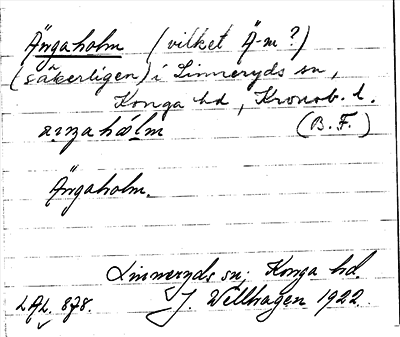 Ängaholm (vilket Ä-m?)
(säkerligen) i Linneryds sn,
Konga hd, Kronob. l.
(B. F.)
Ängaholm.
Linneryds sn, Konga hd.
LAL. 878. J. Willhagen 1922.